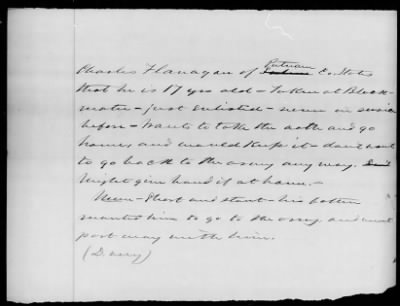 Putnam
Charles Flanagan of Co. States
that he is 17 yrs old - Taken at Black-
water - just enlisted - never in service
before - Wants to take the oath and go
home and would keep it - don't want
to go back to the army any way.
Might give bond if at home. -
Mem - Short and stout - his father
wanted him to go to the army and not
part way with him.
(D. very)